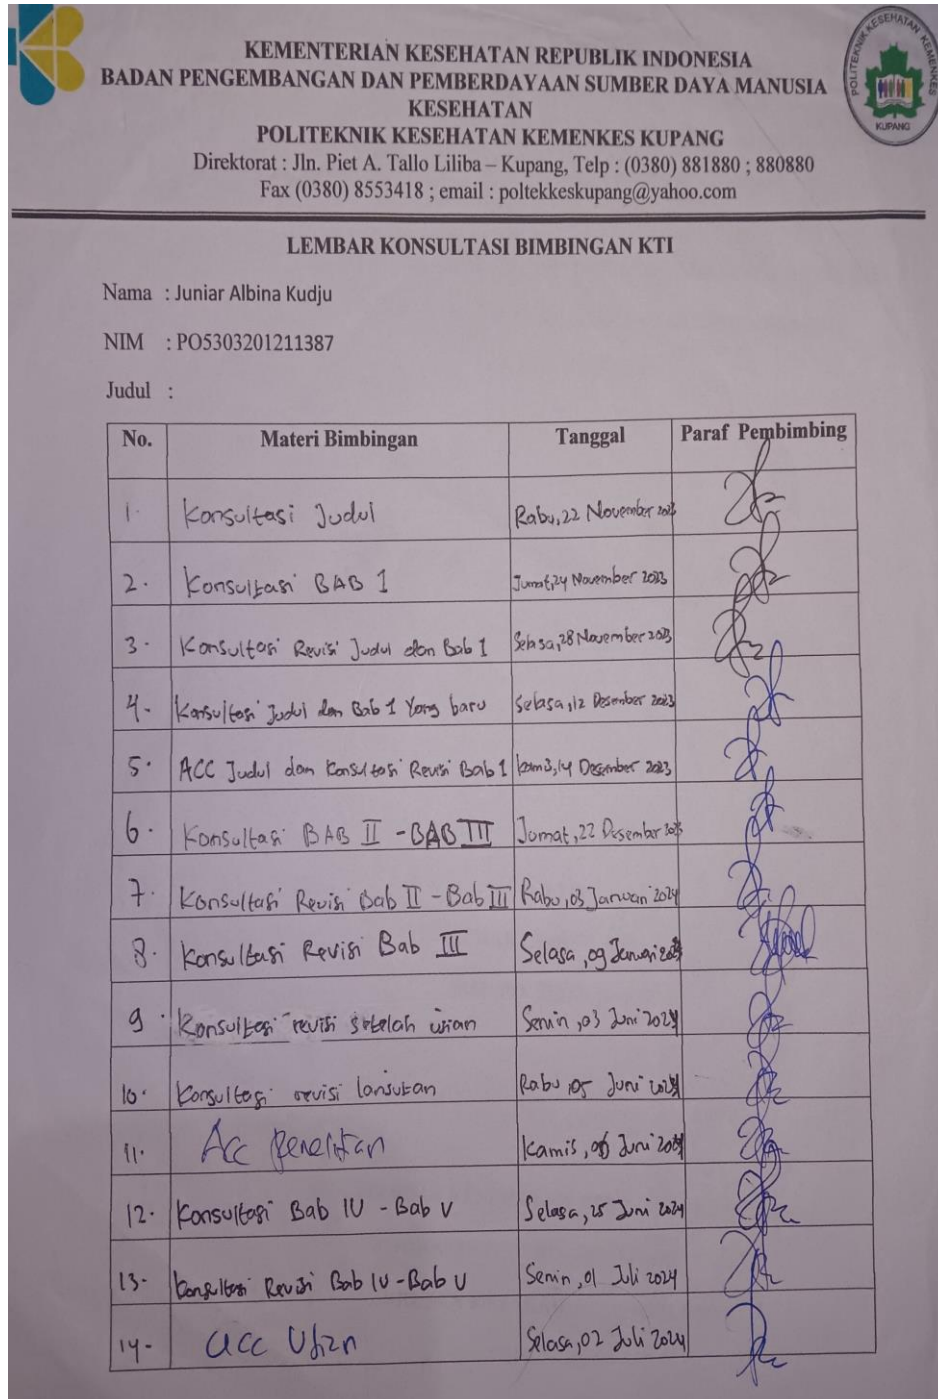 KEMENTERIAN KESEHATAN REPUBLIK INDONESIA
BADAN PENGEMBANGAN DAN PEMBERDAYAAN SUMBER DAYA MANUSIA
KESEHATAN
POLITEKNIK KESEHATAN KEMENKES KUPANG
Direktorat : Jln. Piet A. Tallo Liliba – Kupang, Telp : (0380) 881880 ; 880880
Fax (0380) 8553418 ; email : poltekkeskupang@yahoo.com
POLITEKNIK KESEHATAN KEMENKES
KUPANG
LEMBAR KONSULTASI BIMBINGAN KTI
Nama : Juniar Albina Kudju
NIM : PO5303201211387
Judul :
No. Materi Bimbingan Tanggal Paraf Pembimbing
1. Konsultasi Judul Rabu, 22 November 2023
2. Konsultasi BAB 1 Jumat, 24 November 2023
3. Konsultasi Revisi Judul dan Bab 1 Selasa, 28 November 2023
4. Konsultasi Judul dan Bab 1 Yang baru Selasa, 12 Desember 2023
5. ACC Judul dan Konsultasi Revisi Bab 1 Kamis, 14 Desember 2023
6. Konsultasi BAB II - BAB III Jumat, 22 Desember 2023
7. Konsultasi Revisi Bab II - Bab III Rabu, 03 Januari 2024
8. Konsultasi Revisi Bab III Selasa, 09 Januari 2024
9. Konsultasi revisi setelah ujian Senin, 03 Juni 2024
10. Konsultasi revisi lanjutan Rabu, 05 Juni 2024
11. Acc Penelitian Kamis, 06 Juni 2024
12. Konsultasi Bab IV - Bab V Selasa, 25 Juni 2024
13. Konsultasi Revisi Bab IV - Bab V Senin, 01 Juli 2024
14. acc Ujian Selasa, 02 Juli 2024